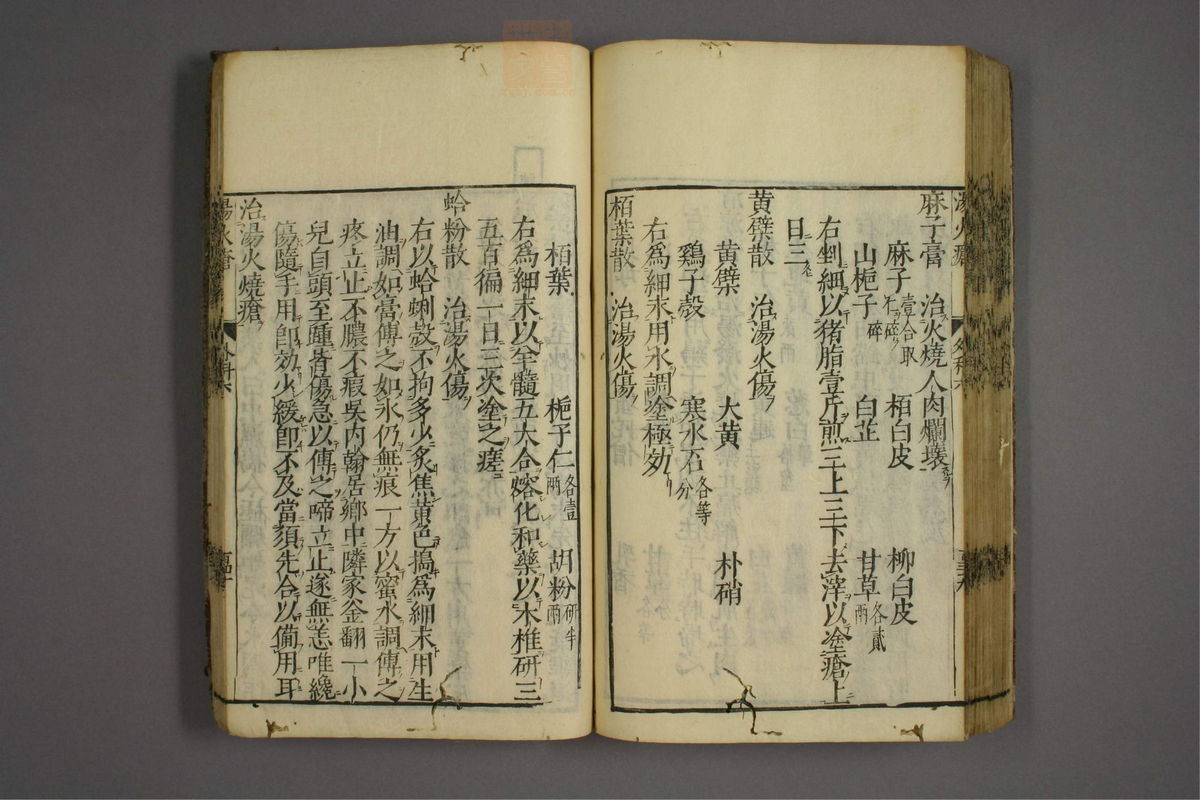 麻子膏　治火燒人肉爛壞
麻子壹合取仁碎　栢白皮　柳白皮
山梔子碎　白芷　甘草各貳兩
右剉細以猪脂壹斤煎三上三下去滓以塗瘡上
日三
黃蘗散　治湯火傷
黃蘗　大黃　朴硝
鷄子殼　寒水石各等分
右爲細末用水調塗極効
栢葉散　治湯火傷
栢葉　梔子仁各壹兩　胡粉研半兩
右爲細末以羊髓五大合熔化和藥以木椎研三
五百徧一日三次塗之瘥
蛤粉散　治湯火傷
右以蛤蜊殼不拘多少炙焦黃色搗爲細末用生
油調如膏傅之如氷仍無痕一方以蜜水調傅之
疼立止不膿不痕吳内翰居鄉中隣家釜翻一小
兒自頭至踵皆傷急以傅之啼立止遂無恙唯纔
傷隨手用卽効少緩卽不及當須先合以備用耳
治湯火燒瘡
湯火瘡　外科六